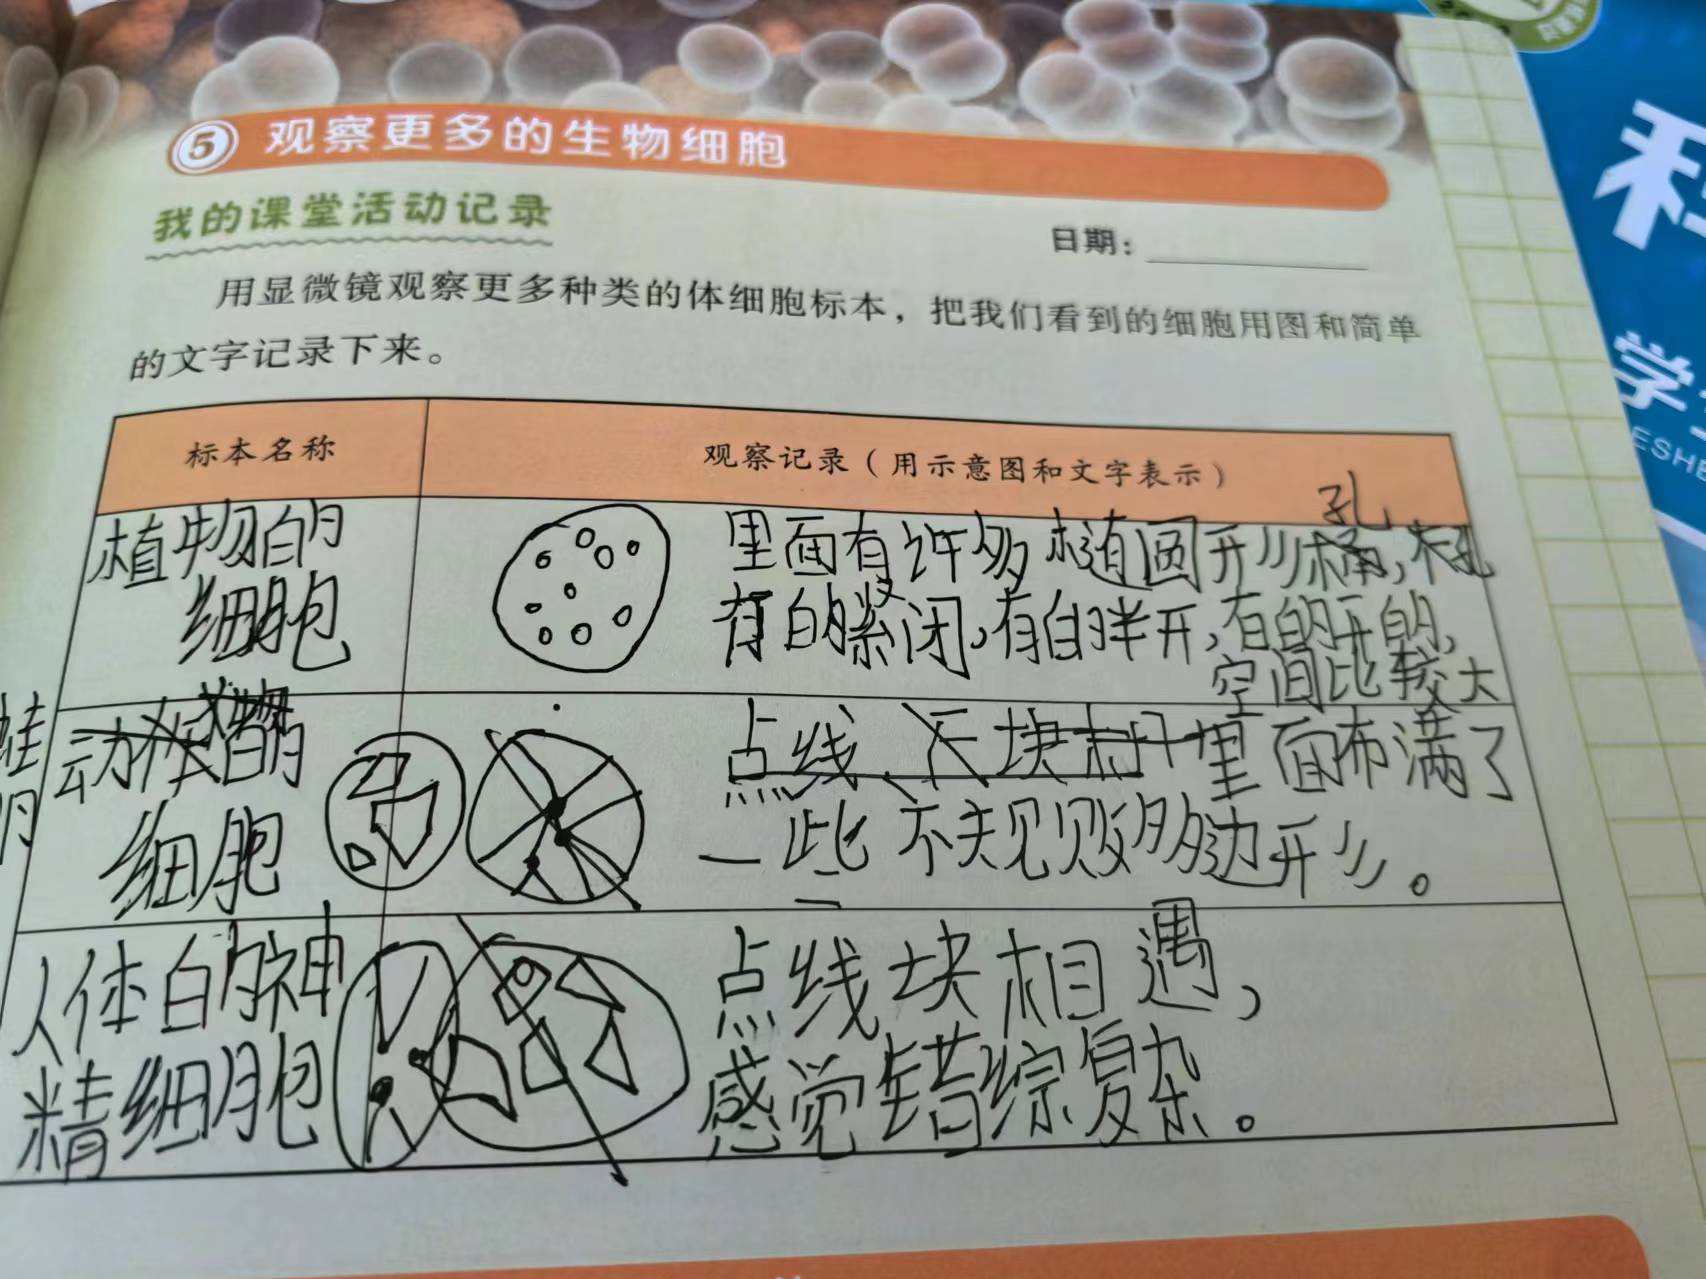 ⑤ 观察更多的生物细胞
我的课堂活动记录
日期：
用显微镜观察更多种类的体细胞标本，把我们看到的细胞用图和简单
的文字记录下来。
标本名称
观察记录（用示意图和文字表示）
植物的
细胞
孔
里面有许多椭圆形
有的紧闭，有的半开，有的开的，
空间比较大
蛙
的
动体
细胞
点线、块
里面布满了
一些不规则多边形。
人体的神
精细胞
点线块相遇，
感觉错综复杂。
科
学